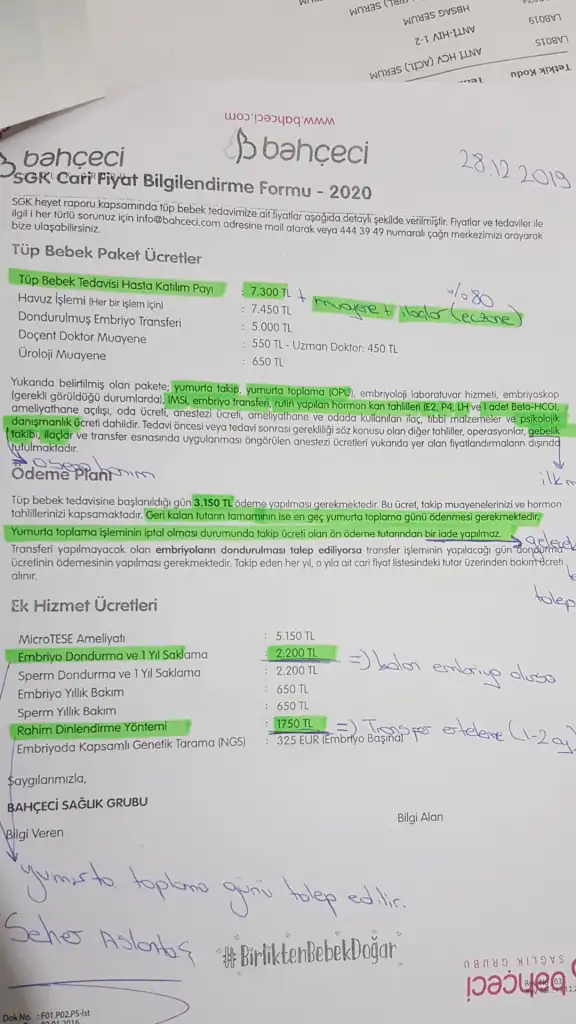 HBSAG SERUM
LAB019
ANTI-HIV 1-2
LAB015
ANTI HCV (ACİL) SERUM
Tetkik Kodu
www.bahceci.com
bahçeci
bahçeci
28.12.2019
SGK Cari Fiyat Bilgilendirme Formu - 2020
SGK heyet raporu kapsamında tüp bebek tedavimize ait fiyatlar aşağıda detaylı şekilde verilmiştir. Fiyatlar ve tedaviler ile
ilgili her türlü sorunuz için info@bahceci.com adresine mail atarak veya 444 39 49 numaralı çağrı merkezimizi arayarak
bize ulaşabilirsiniz.
Tüp Bebek Paket Ücretler
Tüp Bebek Tedavisi Hasta Katılım Payı : 7.300 TL + muayene + ilaçlar (eczane) %80
Havuz İşlemi (Her bir işlem için) : 7.450 TL
Dondurulmuş Embriyo Transferi : 5.000 TL
Doçent Doktor Muayene : 550 TL - Uzman Doktor: 450 TL
Üroloji Muayene : 650 TL
Yukarıda belirtilmiş olan pakete; yumurta takip, yumurta toplama (OPU), embriyoloji laboratuvar hizmeti, embriyoskop
(gerekli görüldüğü durumlarda), IMSI, embriyo transferi, rutin yapılan hormon kan tahlilleri (E2, P4, LH ve 1 adet Beta-HCG),
ameliyathane açılışı, oda ücreti, anestezi ücreti, ameliyathane ve odada kullanılan ilaç, tıbbi malzemeler ve psikolojik
danışmanlık ücreti dahildir. Tedavi öncesi veya tedavi sonrası gerekliliği söz konusu olan diğer tahliller, operasyonlar, gebelik
takibi, ilaçlar ve transfer esnasında uygulanması öngörülen anestezi ücretleri yukarıda yer alan fiyatlandırmaların dışında
tutulmaktadır.
Ödeme Planı
Tüp bebek tedavisine başlanıldığı gün 3.150 TL ödeme yapılması gerekmektedir. Bu ücret, takip muayenelerinizi ve hormon
tahlillerinizi kapsamaktadır. Geri kalan tutarın tamamının ise en geç yumurta toplama günü ödenmesi gerekmektedir.
Yumurta toplama işleminin iptal olması durumunda takip ücreti olan ön ödeme tutarından bir iade yapılmaz.
Transferi yapılmayacak olan embriyoların dondurulması talep ediliyorsa transfer işleminin yapılacağı gün dondurma
ücretinin ödemesinin yapılması gerekmektedir. Takip eden her yıl, o yıla ait cari fiyat listesindeki tutar üzerinden bakım ücreti
alınır.
talep
Ek Hizmet Ücretleri
MicroTESE Ameliyatı : 5.150 TL
Embriyo Dondurma ve 1 Yıl Saklama : 2.200 TL => kalan embriyo olursa
Sperm Dondurma ve 1 Yıl Saklama : 2.200 TL
Embriyo Yıllık Bakım : 650 TL
Sperm Yıllık Bakım : 650 TL
Rahim Dinlendirme Yöntemi : 1750 TL => Transfer erteleme (1-2 ay)
Embriyoda Kapsamlı Genetik Tarama (NGS) : 325 EUR (Embriyo Başına)
Saygılarımızla,
BAHÇECİ SAĞLIK GRUBU
Bilgi Alan
Bilgi Veren
yumurta toplama günü talep edilir.
Seher Aslantaş
#BirliktenBebekDoğar
SAĞLIK GRUBU
bahçeci
Dok No. : F01.P02.PS-İst